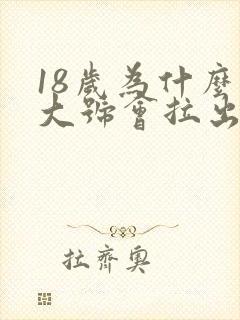 18歲為什麼
大號會拉出
拉齊奧